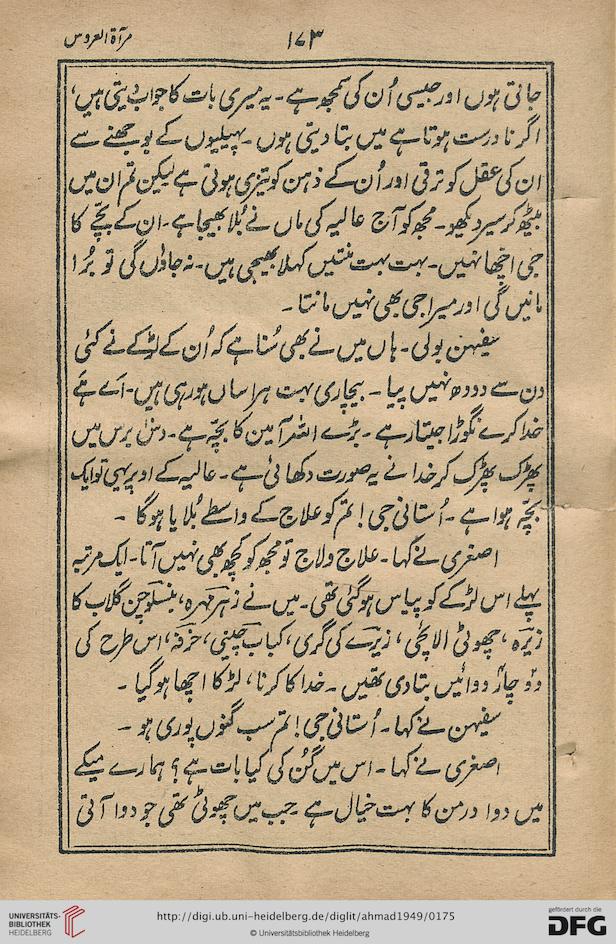 ۱۷۳
مرآۃ العروس
جاتی ہوں اور جیسی اُن کی سمجھ ہے۔ یہ میری بات کا جواب دیتی ہیں،
اگر نا درست ہوتا ہے میں بتا دیتی ہوں۔ پہیلیوں کے بوجھنے سے
ان کی عقل کو ترقی اور اُن کے ذہن کو تیزی ہوتی ہے لیکن تم ان میں
بیٹھ کر سیر دیکھو۔ مجھ کو آج عالیہ کی ماں نے بُلا بھیجا ہے۔ ان کے بچّے کا
جی اچھا نہیں۔ بہت بہت منتیں کہلا بھیجی ہیں۔ نہ جاؤں گی تو بُرا
مانیں گی اور میرا جی بھی نہیں مانتا۔
سفیہن بولی۔ ہاں میں نے بھی سُنا ہے کہ اُن کے لڑکے نے کئی
دن سے دودھ نہیں پیا۔ بیچاری بہت ہراساں ہو رہی ہیں۔ اے ہے
خدا کرے نگوڑا جیتا رہے۔ بڑے اللہ آمین کا بچّہ ہے۔ دس برس میں
پھڑک پھڑک کر خدا نے یہ صورت دکھائی ہے۔ عالیہ کے اوپر یہی تو ایک
بچّہ ہوا ہے۔ اُستانی جی! تم کو علاج کے واسطے بُلایا ہوگا۔
اصغری نے کہا۔ علاج ولاج تو مجھ کو کچھ بھی نہیں آتا۔ ایک مرتبہ
پہلے اس لڑکے کو پیاس ہو گئی تھی۔ میں نے زہر مہرہ، بنسلوچن گلاب کا
زیرہ، چھوٹی الائچی، زیرے کی گری، کباب چینی، خرفہ، اس طرح کی
دو چار دوائیں بتا دی تھیں۔ خدا کا کرنا، لڑکا اچھا ہو گیا۔
سفیہن نے کہا۔ اُستانی جی! تم سب گنوں پوری ہو۔
اصغری نے کہا۔ اس میں گُن کی کیا بات ہے؟ ہمارے میکے
میں دوا درمن کا بہت خیال ہے۔ جب میں چھوٹی تھی جو دوا آتی
UNIVERSITÄTS-
BIBLIOTHEK
HEIDELBERG
http://digi.ub.uni-heidelberg.de/diglit/ahmad1949/0175
© Universitätsbibliothek Heidelberg
gefördert durch die
DFG